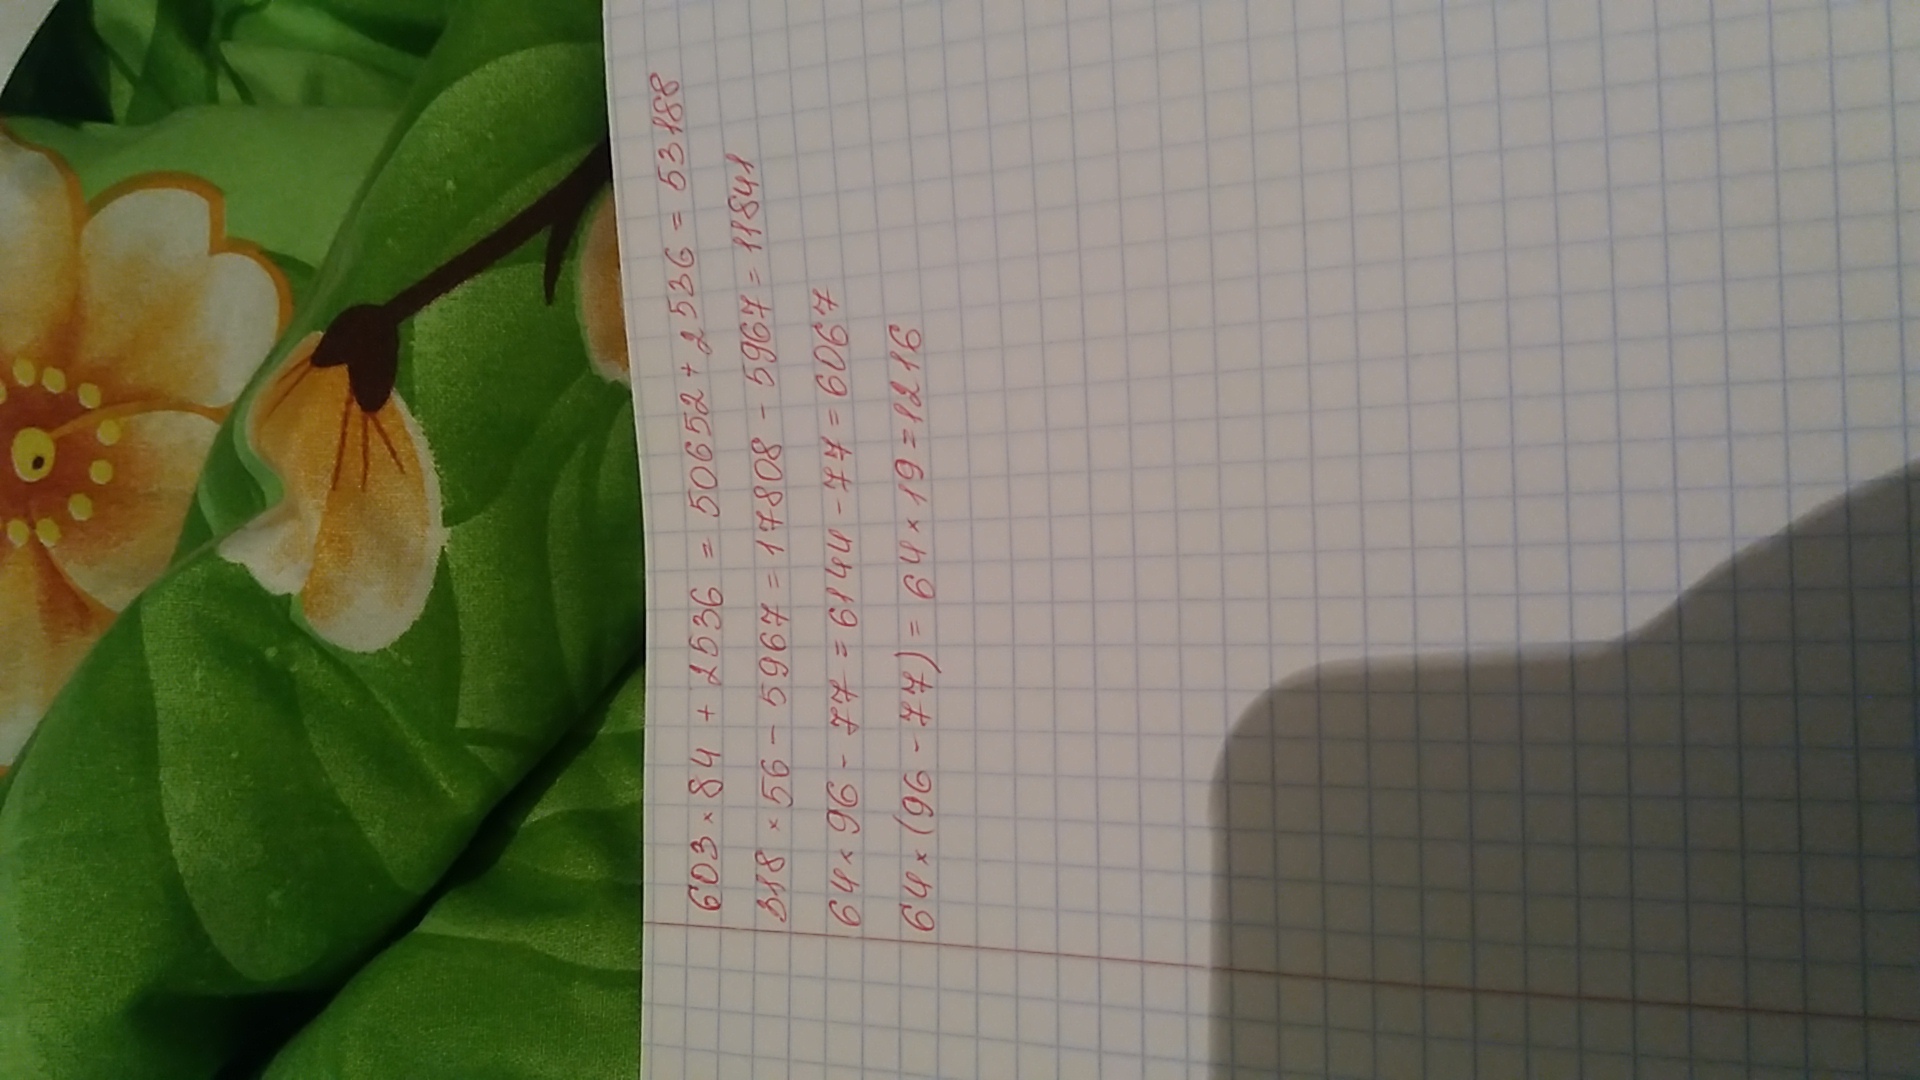 603 × 84 + 2536 = 50652 + 2536 = 53188
318 × 56 - 5967 = 17808 - 5967 = 11841
64 × 96 - 77 = 6144 - 77 = 6067
64 × (96 - 77) = 64 × 19 = 1216